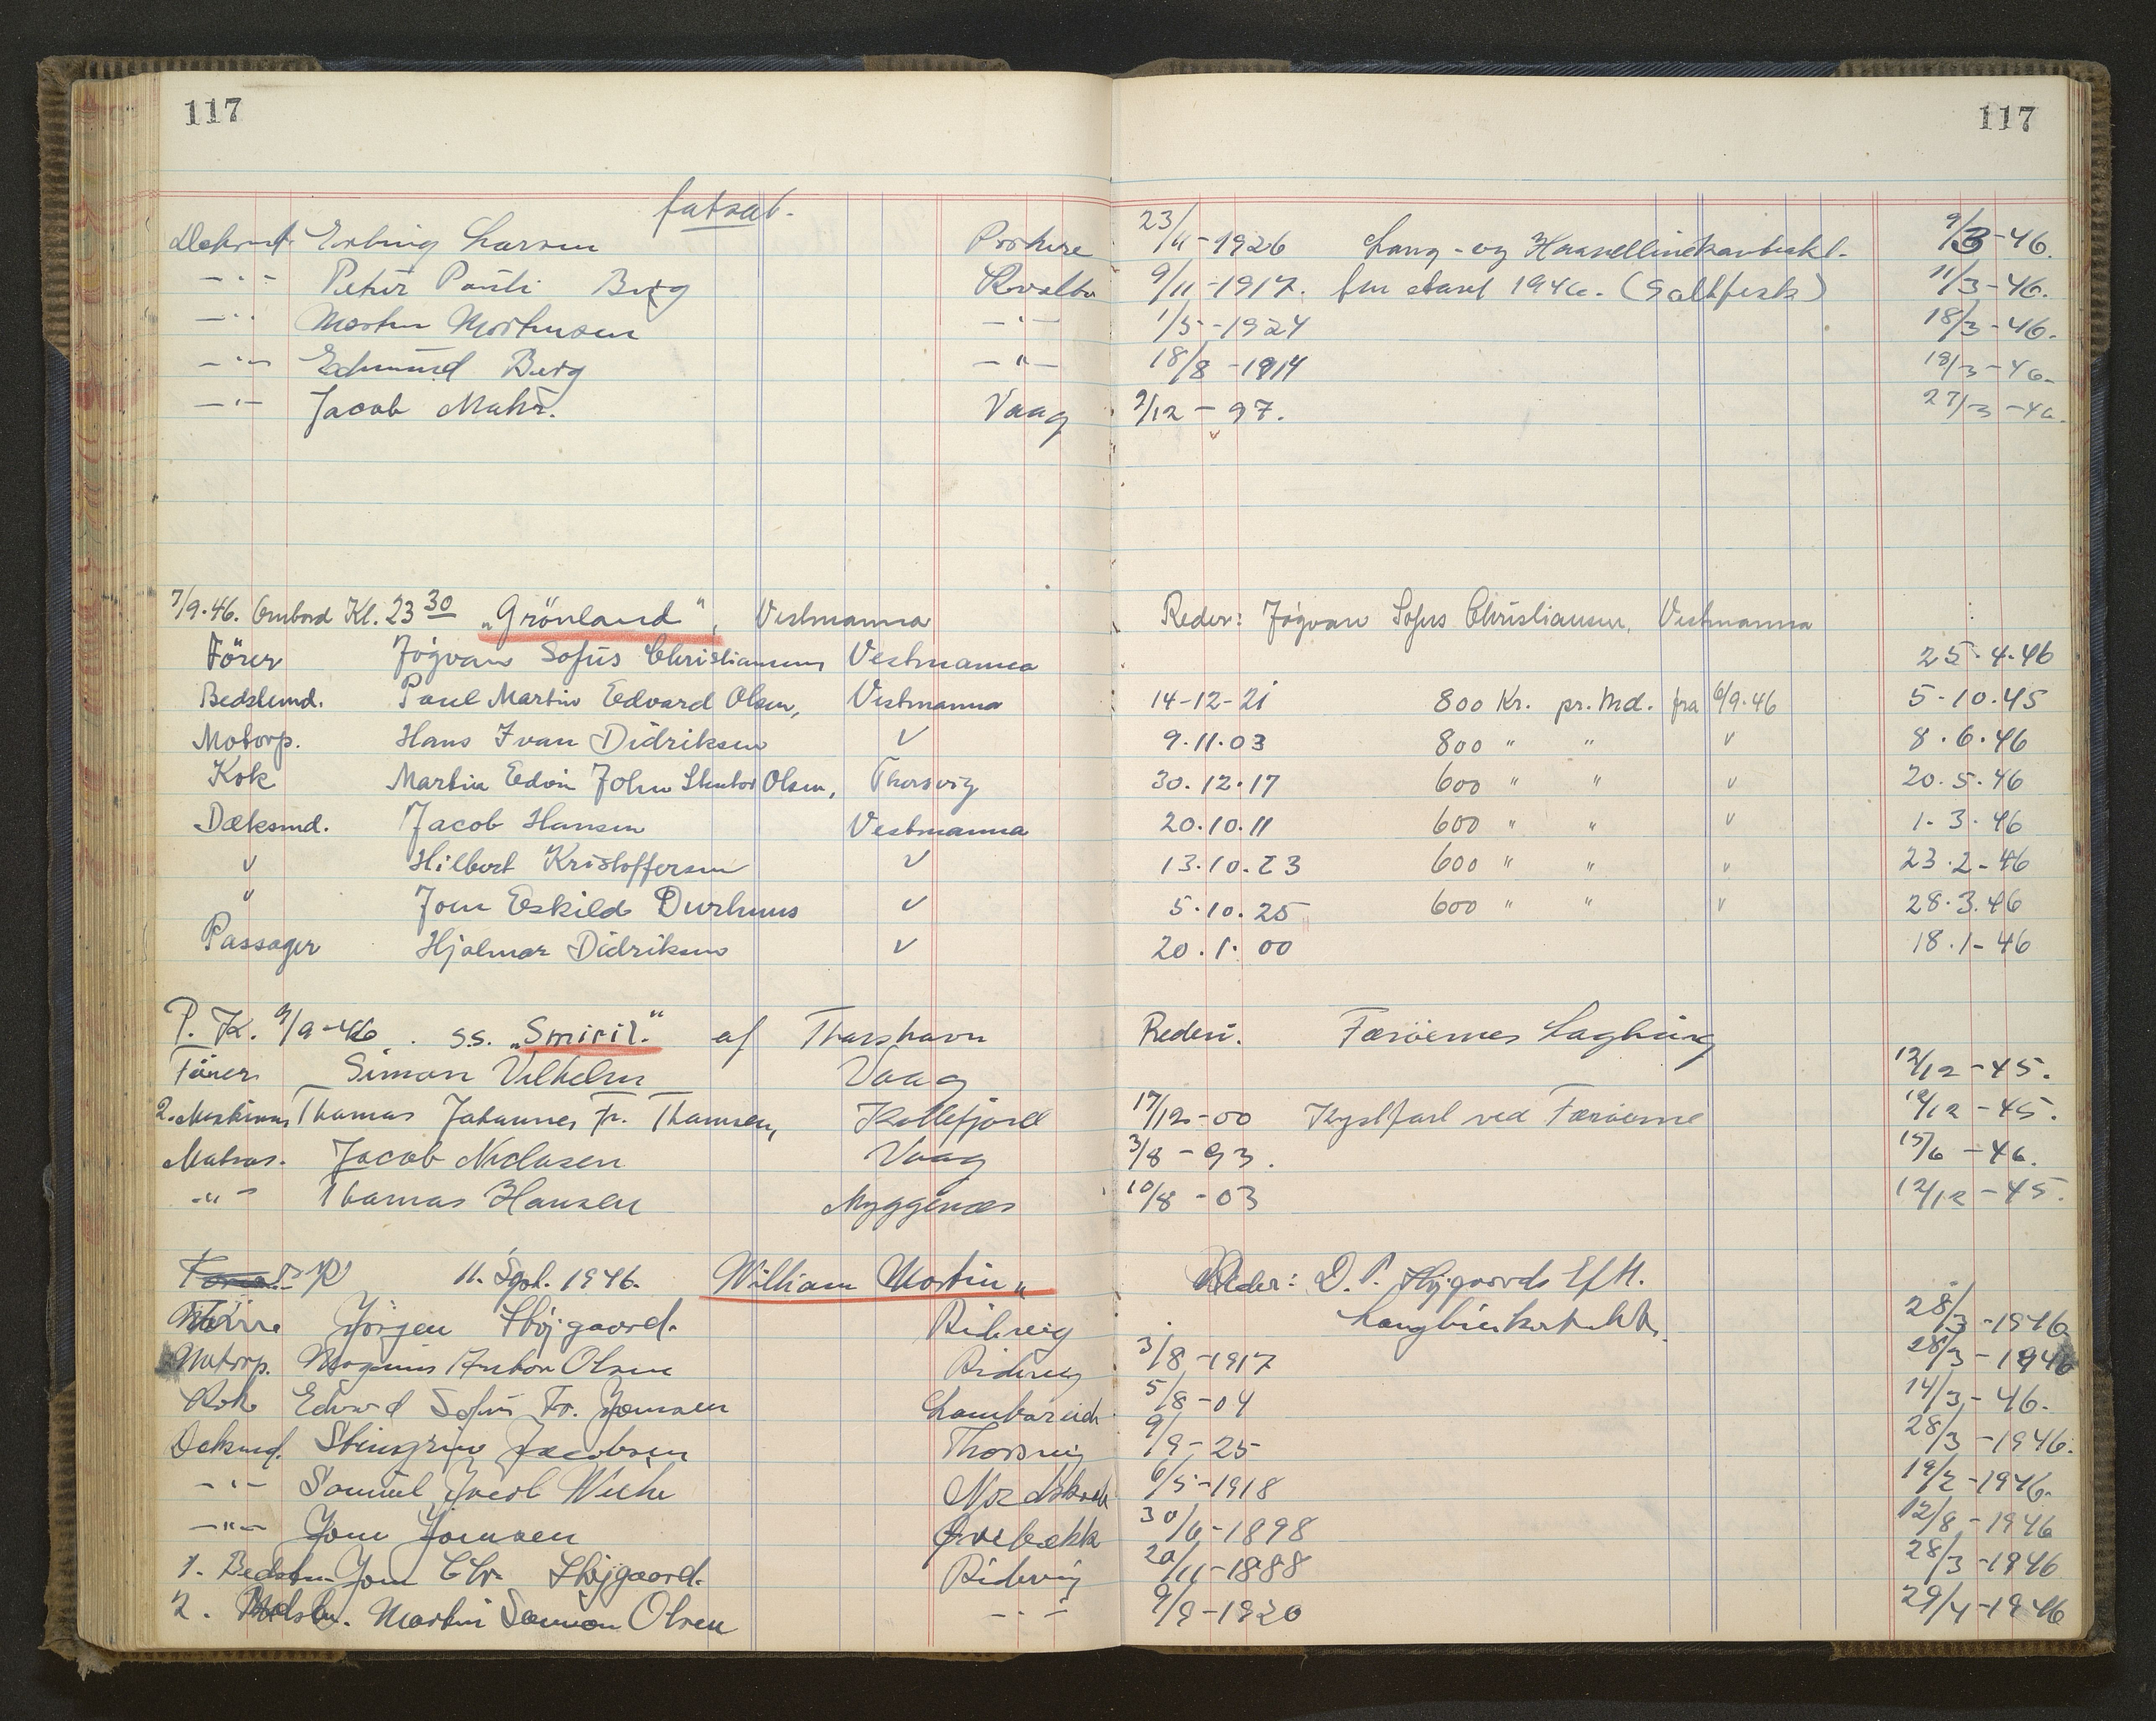 117 117
fatsat.
Deksmd. Erling Larsen Porkere 23/11-1926 Lang- og 9/3-46.
-"- Petur Pauli Berg Kvalbø 9/11-1917. 1946. (Saltfisk) 11/3-46.
-"- Morten Mortensen -"- 1/5-1924 18/3-46.
-"- Edmund Berg -"- 18/8-1914 18/3-46.
-"- Jacob Mahr. Vaag 2/12-97. 27/3-46.
7/9.46. Ombord Kl. 23 30 „Grönland", Vestmanna Reder: Jógvan Sofus Christiansen, Vestmanna
Förer Jógvan Sofus Christiansen Vestmanna 25.4.46
Bedstemd. Poul Martin Edvard Olsen, Vestmanna 14-12-21 800 Kr. pr. Md. fra 6/9.46 5.10.45
Motorp. Hans Ivan Didriksen " 9.11.03 800 " " " 8.6.46
Kok Martin Edvin John Olsen, Thorsvig 30.12.17 600 " " " 20.5.46
Dæksmd. Jacob Hansen Vestmanna 20.10.11 600 " " " 1.3.46
" Hilbert Kristoffersen " 13.10.23 600 " " " 23.2-46
" Joen Eskild Durhuus " 5.10.25 600 " " " 28.3.46
Passager Hjalmar Didriksen " 20.1.00 18.1-46
P. K. 9/9-46. s.s. „Smiril." af Thorshavn Rederi. Færöernes Lagting
Förer Simon Vilhelm Vaag 12/12-45.
2. Maskinm Thomas Johannes Fr. Thomsen, Kollefjord 17/12-00 Kystfart ved Færöerne 12/12-45.
Matros. Jacob Niclasen Vaag 3/8-93. 15/6-46.
-"- Thomas Hansen Myggenæs 10/8-03 12/12-45.
P.K 11. Sept. 1946. William Martin" Reder: D. P. Højgaards Eftf.
Jörgen Højgaard. Ridevig 28/3-1946
Motorp. Magnus Anton Olsen Ridevig 3/8-1917 28/3-1946
Kok Edvard Sofus Fr. Joensen Lambareidi 5/8-04 14/3-46.
Deksmd. Steingrim Jacobsen Thorsvig 9/9-25 28/3-1946.
-"- Samuel Jacob Weihe Nordskaale 6/5-1918 19/2-1946.
-"- Joen Joensen 30/6-1898 12/8-1946
1. Bedstm. Joen Chr. Højgaard. Ridevig 20/11-1888 28/3-1946
2. Bedstm. Martin Samson Olsen -"- 9/9-1920 29/4-1946